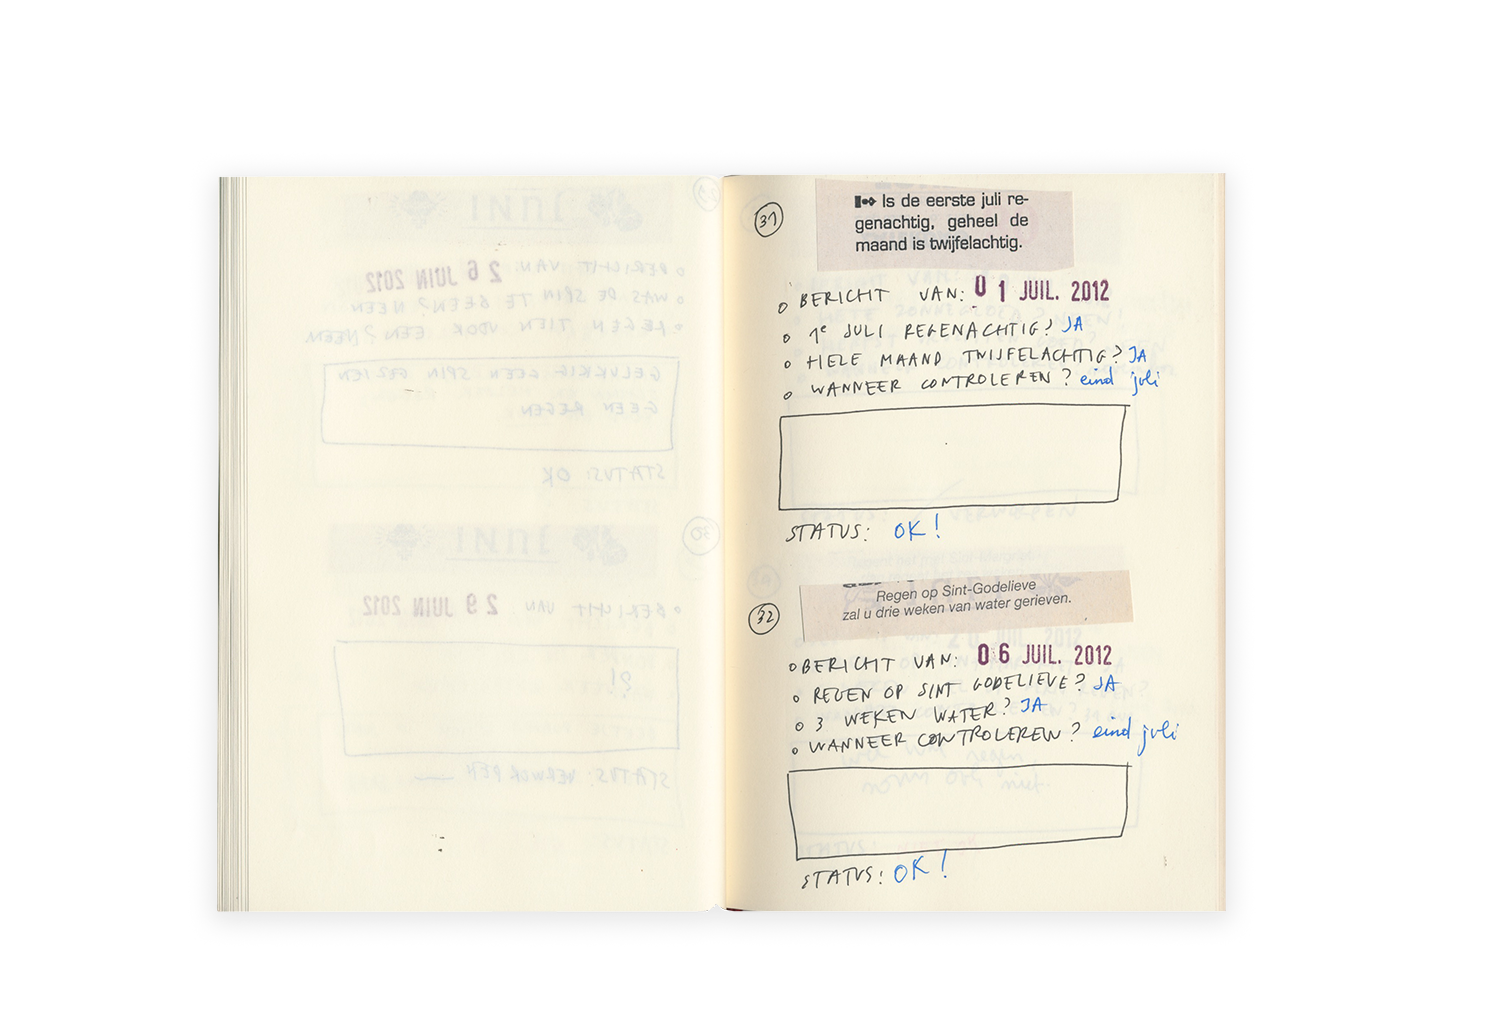 31
Is de eerste juli re-
genachtig, geheel de
maand is twijfelachtig.
BERICHT VAN: 01 JUIL. 2012
1e JULI REGENACHTIG? JA
HELE MAAND TWIJFELACHTIG? JA
WANNEER CONTROLEREN? eind juli
STATUS: OK!
32
Regen op Sint-Godelieve
zal u drie weken van water gerieven.
BERICHT VAN: 06 JUIL. 2012
REGEN OP SINT GODELIEVE? JA
3 WEKEN WATER? JA
WANNEER CONTROLEREN? eind juli
STATUS: OK!